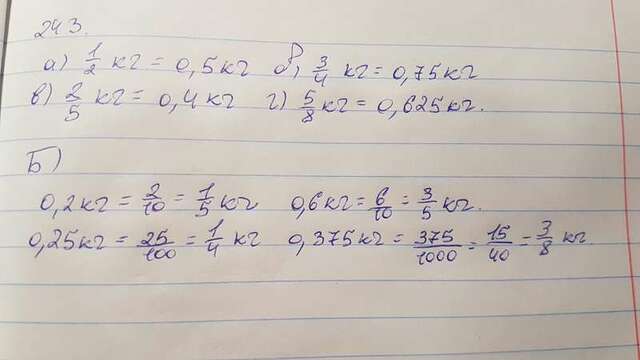 243.
а) 1/2 кг = 0,5кг б) 3/4 кг = 0,75кг
в) 2/5 кг = 0,4кг г) 5/8 кг = 0,625кг.
Б)
0,2кг = 2/10 = 1/5 кг 0,6кг = 6/10 = 3/5 кг.
0,25кг = 25/100 = 1/4 кг 0,375кг = 375/1000 = 15/40 = 3/8 кг.